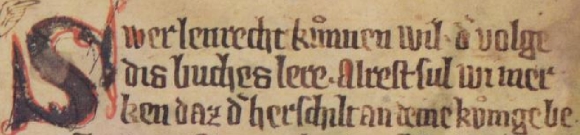 Swer lenrecht kůnnen wil· d᷒ volge
dis buches lere· Alrest sul wi mer
ken daz d᷒ herschilt an deme kůnige be